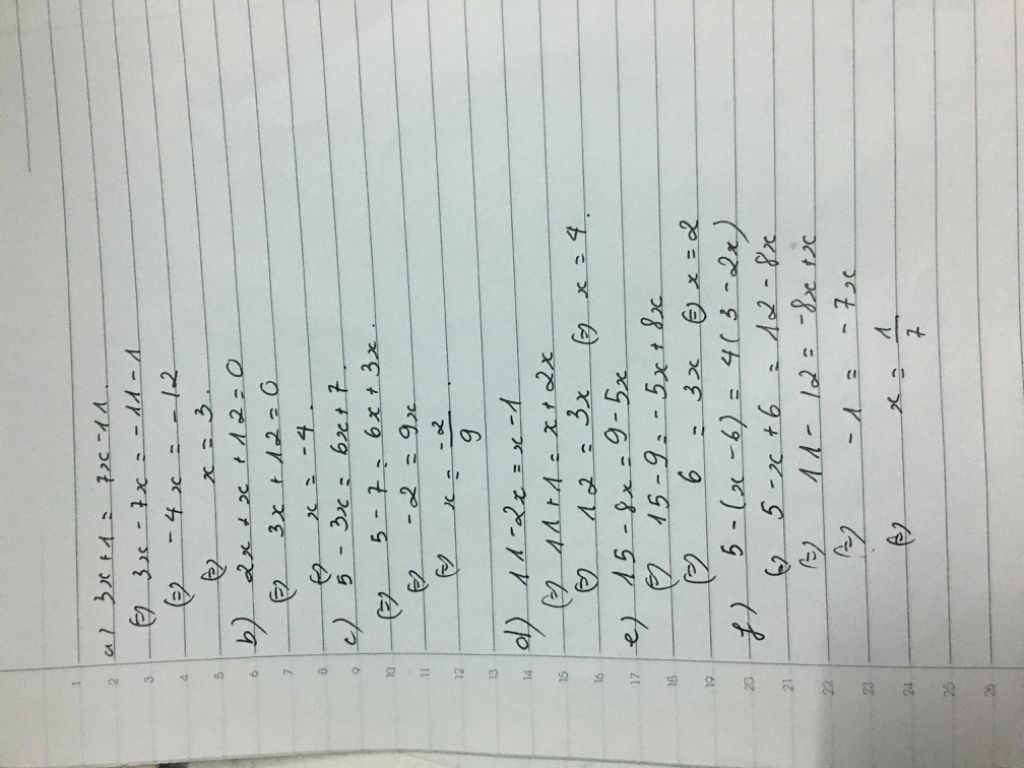 a) 3x+1 = 7x-11.
(=) 3x-7x = -11-1
(=) -4x = -12
(=) x = 3.
b) 2x+x+12=0
(=) 3x+12=0
(=) x = -4.
c) 5-3x = 6x+7.
(=) 5-7 = 6x+3x.
(=) -2 = 9x
(=) x = -2/9.
d) 11-2x = x-1
(=) 11+1 = x+2x
(=) 12 = 3x (=) x = 4.
e) 15-8x = 9-5x
(=) 15-9 = -5x+8x
(=) 6 = 3x (=) x = 2
f) 5-(x-6) = 4(3-2x)
(=) 5-x+6 = 12-8x
(=) 11-12 = -8x+x
(=) -1 = -7x
(=) x = 1/7
1
2
3
4
5
6
7
8
9
10
11
12
13
14
15
16
17
18
19
20
21
22
23
24
25
26